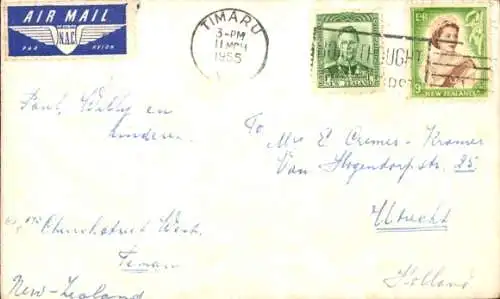 AIR MAIL
N.A.C.
PAR AVION
TIMARU
3-PM
11 MCH
1955
NEW ZEALAND
E II R
9
NEW ZEALAND
Paul, Willy en
kinderen.
To
Mrs E Cremer-Kramer
Van Hogendorpstr. 25
Utrecht
Holland
Churchstreet West.
Timaru
New-Zealand